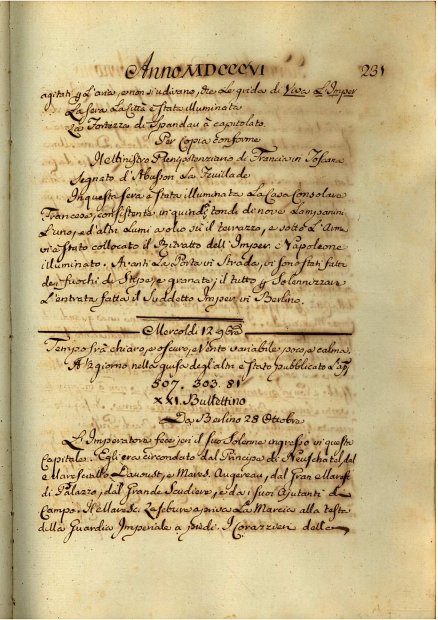 Anno MDCCCVI 231
agitati p l'aria, e non s'udivano, che le grida di Viva L'Imper
La sera La Città è stata illuminata
La Fortezza di Spandau à capitolato.
Per Copia conforme
Il Ministro Plenipotenziario di Francia in Toscana
Segnato d'Abuson La Feuillade
In questa sera è stata illuminata La Casa Consolare
Francese, consistente in quindici tondi di nove Lampanini
L'uno, ed altri Lumi a olio sù il terrazzo, e sotto L'Arme
vi è stato collocato il Ritratto dell'Imper: Napoleone
illuminato. Avanti La Porta in Strada, vi son stati fatti
dei fuochi di Stipe, e granate, il tutto p Solennizzare
L'entrata fatta il Suddetto Imper: in Berlino.
Mercoldì 12 9bre
Tempo frà chiaro, e oscuro, e Vento variabile poco, e calma.
A 1/2 giorno nella guisa degli altri è stato pubblicato L'ap
507. 303. 81
XXI. Bullettino
Da Berlino 28 Ottobre
L'Imperatore fece jeri il suo Solenne ingresso in questa
Capitale. Egli era circondato dal Principe di Neufchatel, dal
Maresciallo Davoust, e Mares. Augereau, dal Gran Maresc.
di Palazzo, dal Grande Scudiere, e da i suoi Ajutanti di
Campo. Il Maresc. Lefebure apriva La Marcia alla testa
della Guardia Imperiale a piedi. I Corazzieri della